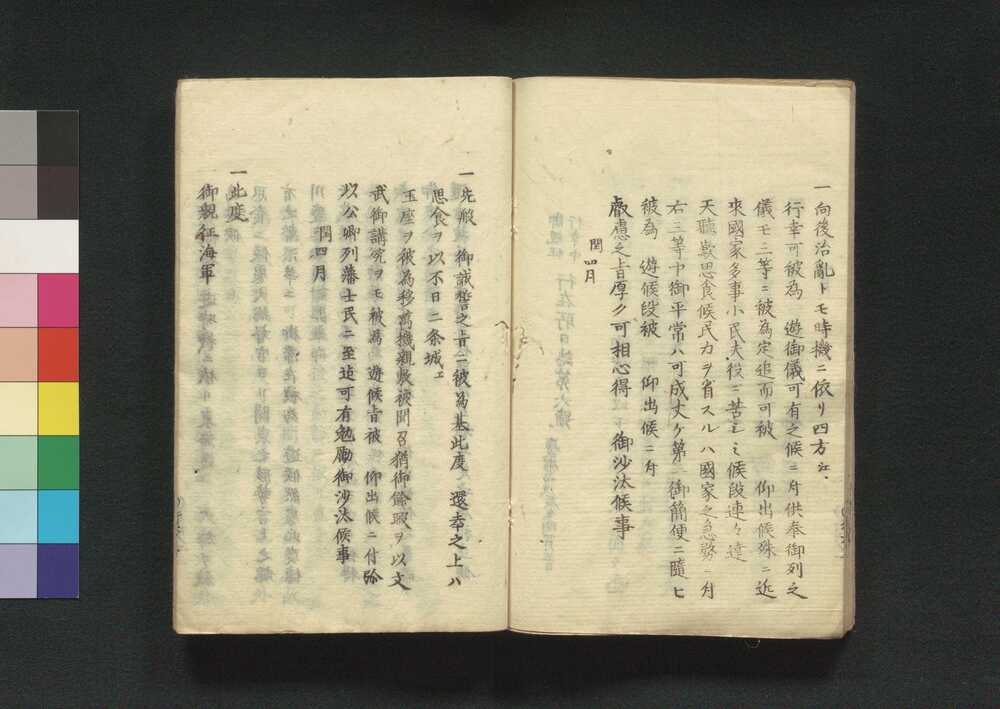 一向後治亂トモ時機ニ依リ四方江
行幸可被為　遊御儀可有之候ニ付供奉御列之
儀モ二等ニ被為定追而可被　仰出候殊ニ近
來國家多事小民夫役ニ苦ミ候段連々達
天聽歎思食候民力ヲ省スルハ國家之急務ニ付
右三等中御平常ハ可成丈ケ第二御簡便ニ隨ヒ
被為　遊候段被　仰出候ニ付
叡慮之旨厚ク可相心得　御沙汰候事
閏四月
一先般　御誠誓之旨ニ被為基此度　還幸之上ハ
思食ヲ以不日二条城エ
玉座ヲ被為移萬機親敷被聞召猶御餘暇ヲ以文
武御講究ヲモ被為　遊候旨被　仰出候ニ付弥
以公卿列藩士民ニ至迄可有勉勵御沙汰候事
閏四月
一此度
御親征海軍